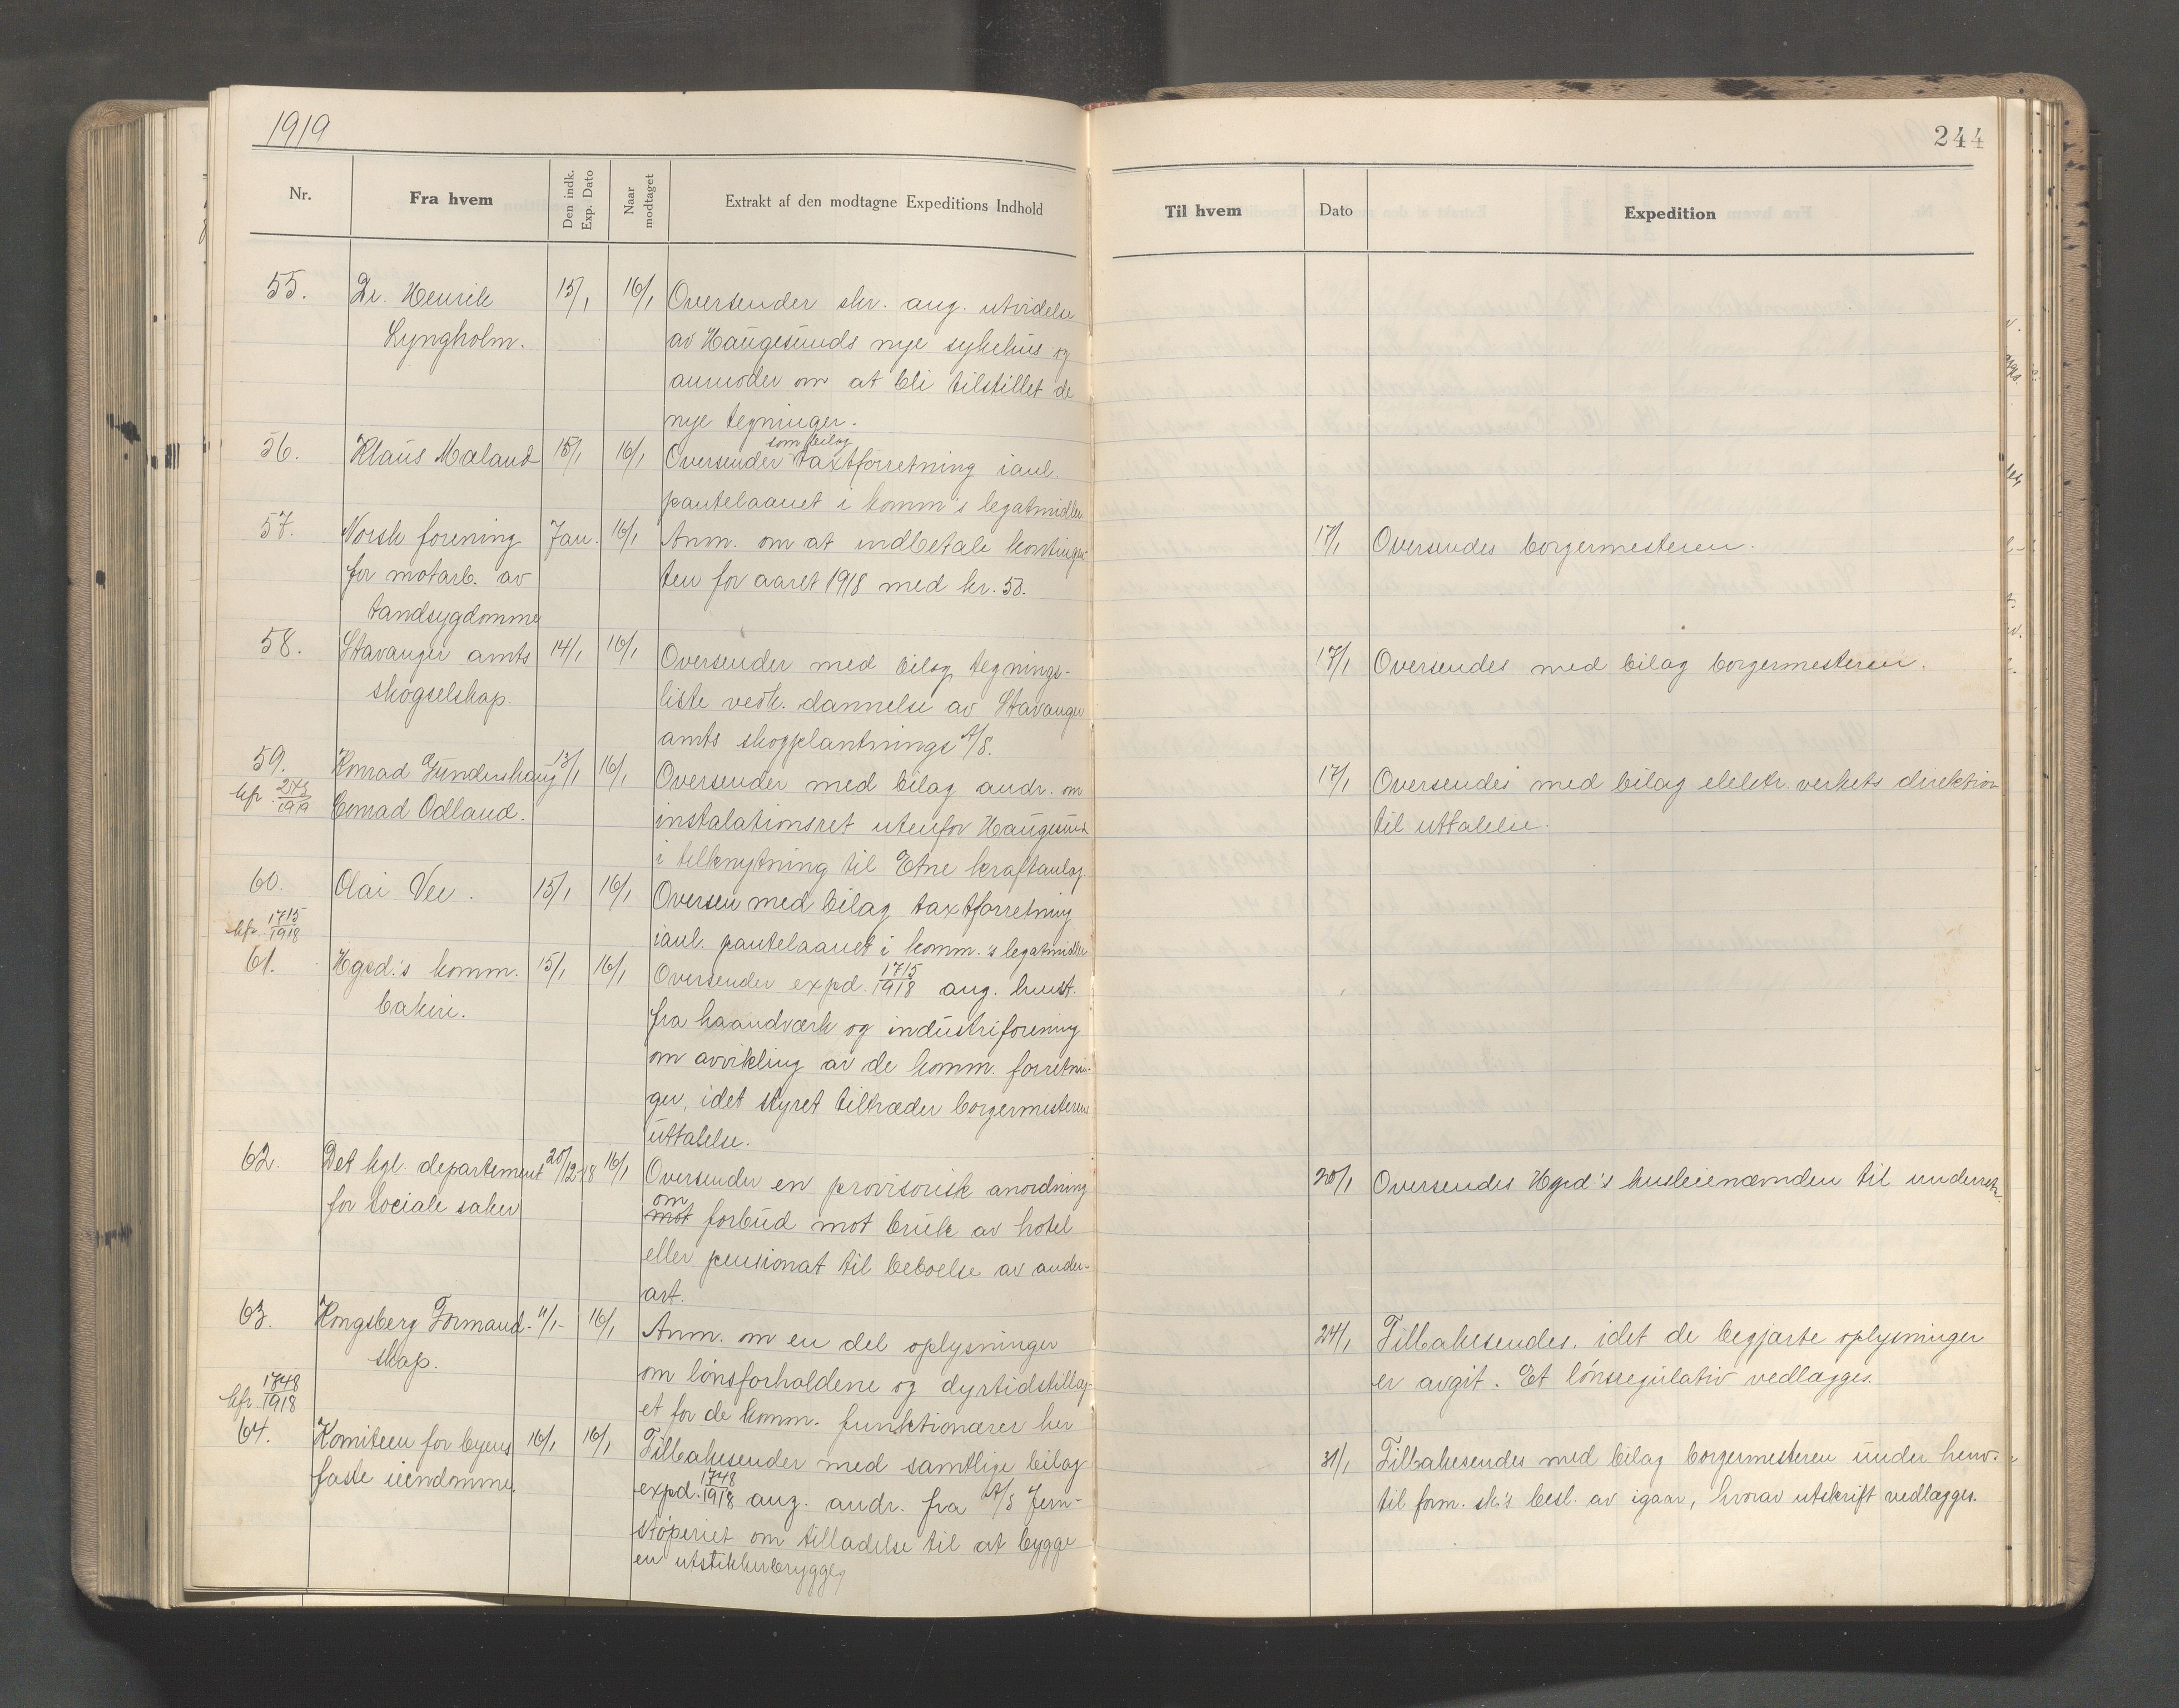 1919
244
Nr. Fra hvem Den indk. Exp. Dato Naar modtaget Extrakt af den modtagne Expeditions Indhold Til hvem Dato Expedition
55. Dr. Henrik 15/1 16/1 Oversender skr. ang. utvidelse
Lyngholm. av Haugesunds nye sykehus og
anmoder om at bli tilstillet de
nye tegninger.
som bilag
56. Klaus Maland 15/1 16/1 Oversender taxtforretning i anl.
pantelaanet i komm's legatmidler
57. Norsk forening Jan. 16/1 Anm. om at indbetale kontingen- 17/1 Oversendes borgermesteren.
for motarb. av ten for aaret 1918 med kr. 50.
tandsygdomme
58. Stavanger amts 14/1 16/1 Oversender med bilag tegnings- 17/1 Oversendes med bilag borgermesteren.
skogselskap. liste vedk. dannelse av Stavanger
amts skogplantnings A/S.
59. Konrad Gundershaug 13/1 16/1 Oversender med bilag andr. om 17/1 Oversendes med bilag elektr verkets direktion
kfr. 1919 Conrad Odland. instalationsret utenfor Haugesund til uttalelse.
i tilknytning til Etne kraftanlag.
60. Olai Vee. 15/1 16/1 Oversen med bilag taxtforretning
kfr. 1715/1918 i anl. pantelaanet i komm.'s legatmidler
61. Hgsd.'s komm. 15/1 16/1 Oversender expd. 1715/1918 ang. henst.
bakeri. fra haandværk og industriforening
om avvikling av de komm. forretnin-
ger, idet styret tiltræder borgermesterens
uttalelse.
62. Det kgl. departement 20/12-18 16/1 Oversender en provisorisk anordning 20/1 Oversendes Hgsd's husleienævnden til underretn.
for sociale saker om
mot forbud mot bruk av hotel
eller pensionat til beboelse av anden
art.
63. Kongsberg Formand- 11/1- 16/1 Anm. om en del oplysninger 24/1 Tilbakesendes, idet de begjærte oplysninger
skap. om lønsforholdene og dyrtidstillæg- er avgit. Et lønsregulativ vedlægges.
kfr. 1748/1918 et for de komm. funktionærer her
64. Komiteen for byens 16/1 16/1 Tilbakesender med samtlige bilag 31/1 Tilbakesendes med bilag borgermesteren under henv.
faste eiendomme expd. 1748/1918 ang. andr. fra A/S Jern- til form. sk.'s besl. av igaar, hvorav utskrift vedlægges.
støperiet om tilladelse til at bygge
en utstikkerbrygge